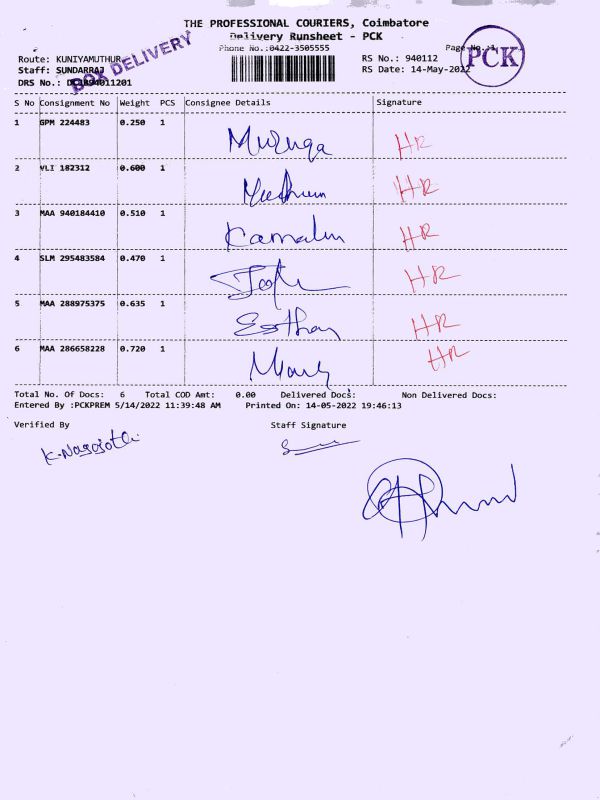 THE PROFESSIONAL COURIERS, Coimbatore
Delivery Runsheet - PCK
Phone No.:0422-3505555
Page No.:1
PCK
BOX DELIVERY
Route: KUNIYAMUTHUR
RS No.: 940112
Staff: SUNDARRAJ
RS Date: 14-May-2022
DRS No.:
S No Consignment No Weight PCS Consignee Details Signature
1 GPM 224483 0.250 1 Muruga HR
2 VLI 182312 0.600 1 HR
3 MAA 940184410 0.510 1 HR
4 SLM 295483584 0.470 1 HR
5 MAA 288975375 0.635 1 HR
6 MAA 286658228 0.720 1 HR
Total No. Of Docs: 6 Total COD Amt: 0.00 Delivered Docs: Non Delivered Docs:
Entered By :PCKPREM 5/14/2022 11:39:48 AM Printed On: 14-05-2022 19:46:13
Verified By Staff Signature